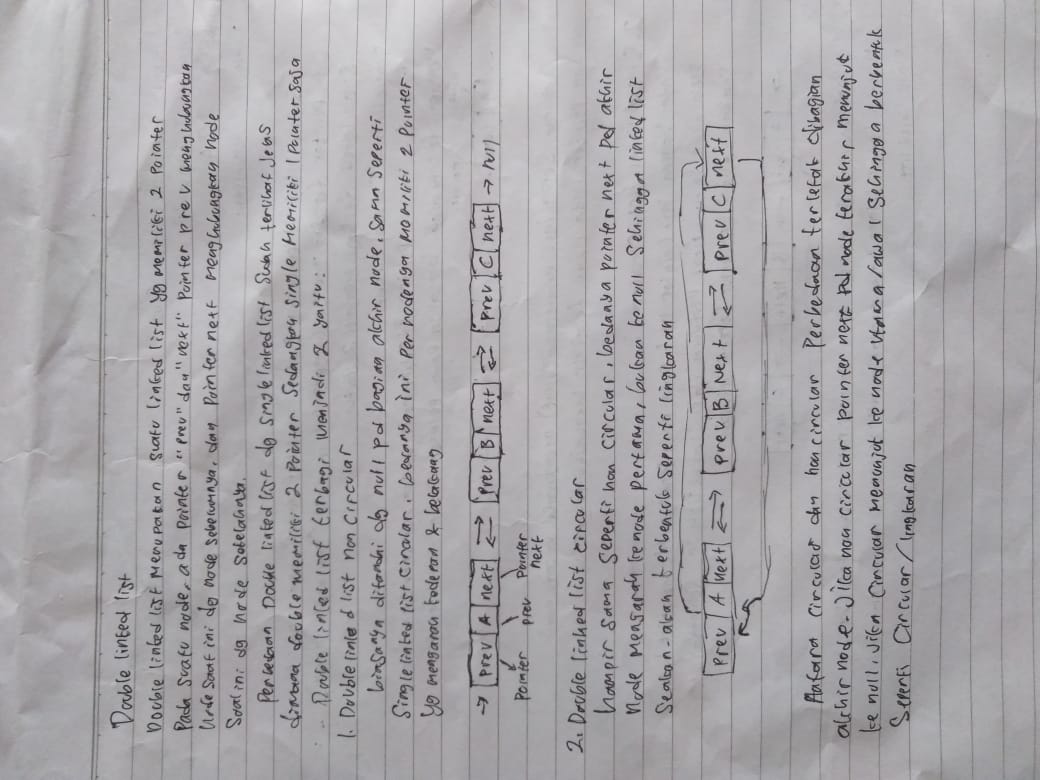 Double linked list
Double linked list merupakan suatu linked list yg memiliki 2 Pointer
Pada suatu node, ada pointer "prev" dan "next" Pointer prev menghubungkan
node saat ini dg node sebelumnya, dan Pointer next menghubungkan node
Saat ini dg node setelahnya.
Perbedaan Double linked list dg single linked list Sudah terlihat Jelas
dimana double memiliki 2 Pointer Sedangkan single Memiliki 1 Pointer saja
Double linked list terbagi Menjadi 2 yaitu:
1. Double linked list non Circular
biasanya ditandai dg null pd bagian akhir node, sama seperti
Single linked list Circular, bedanya ini Per nodenya Memiliki 2 Pointer
Yg mengarah kedepan & belakang
→ prev A next ⇄ prev B next ⇄ prev C next → null
Pointer prev Pointer
next
2. Double linked list circular
hampir sama seperti non circular, bedanya pointer next pd akhir
Node Mengarah ke node pertama, bukan ke null Sehingga linked list
Seakan-akan terbentuk seperti lingkaran
prev A next ⇄ prev B Next ⇄ prev C next
Antara circular dan non circular Perbedaan terletak dibagian
akhir node. Jika non circular pointer next pd node terakhir menunjuk
ke null, Jika Circular Menunjuk ke node utama/awal Sehingga berbentuk
Seperti Circular/lingkaran